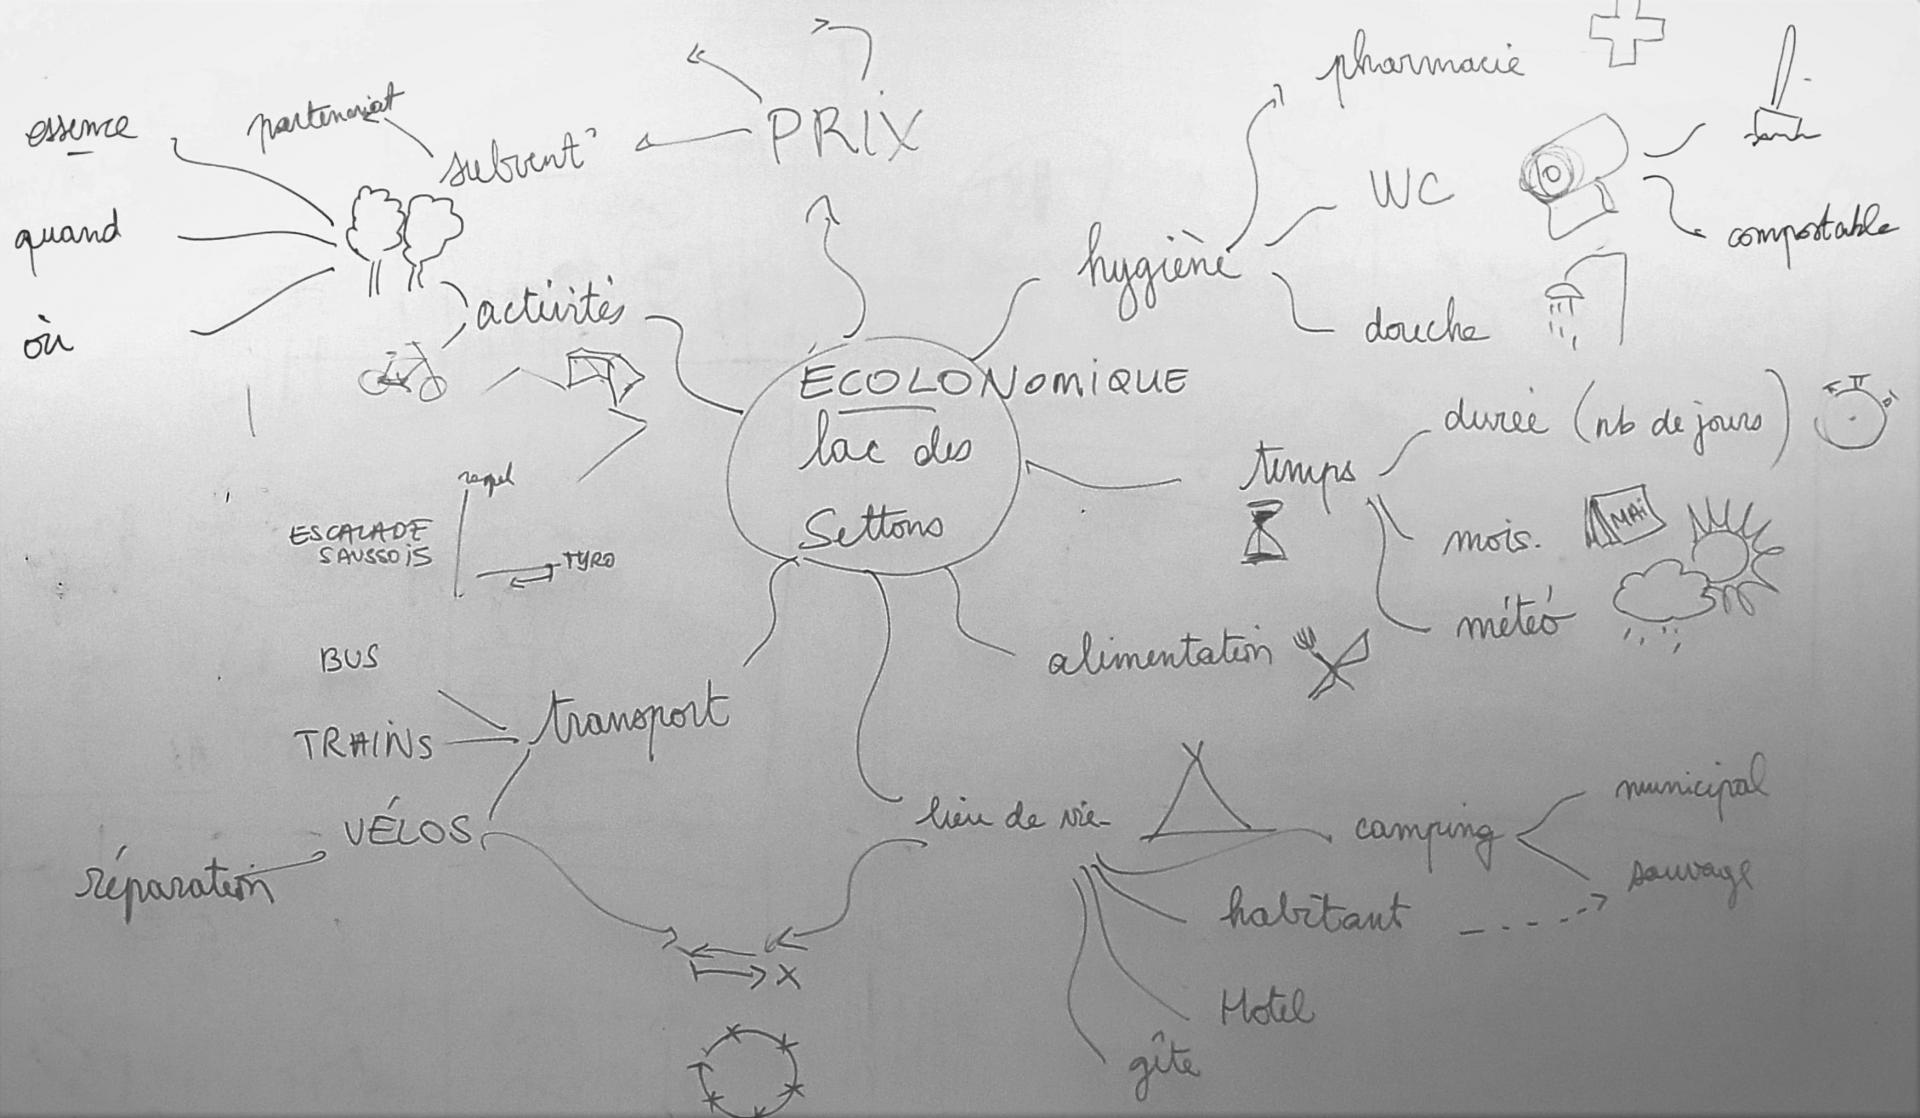 PRIX
partenariat
subvent°
essence
quand
où
activités
pharmacie
WC
compostable
hygiène
douche
ÉCOLONOMIQUE
lac des
Settons
temps
durée (nb de jours)
mois.
MAI
météo
alimentation
rappel
ESCALADE
SAUSSOIS
TYRO
BUS
TRAINS
VÉLOS
transport
réparation
lieu de vie
camping
municipal
sauvage
habitant
Hotel
gîte